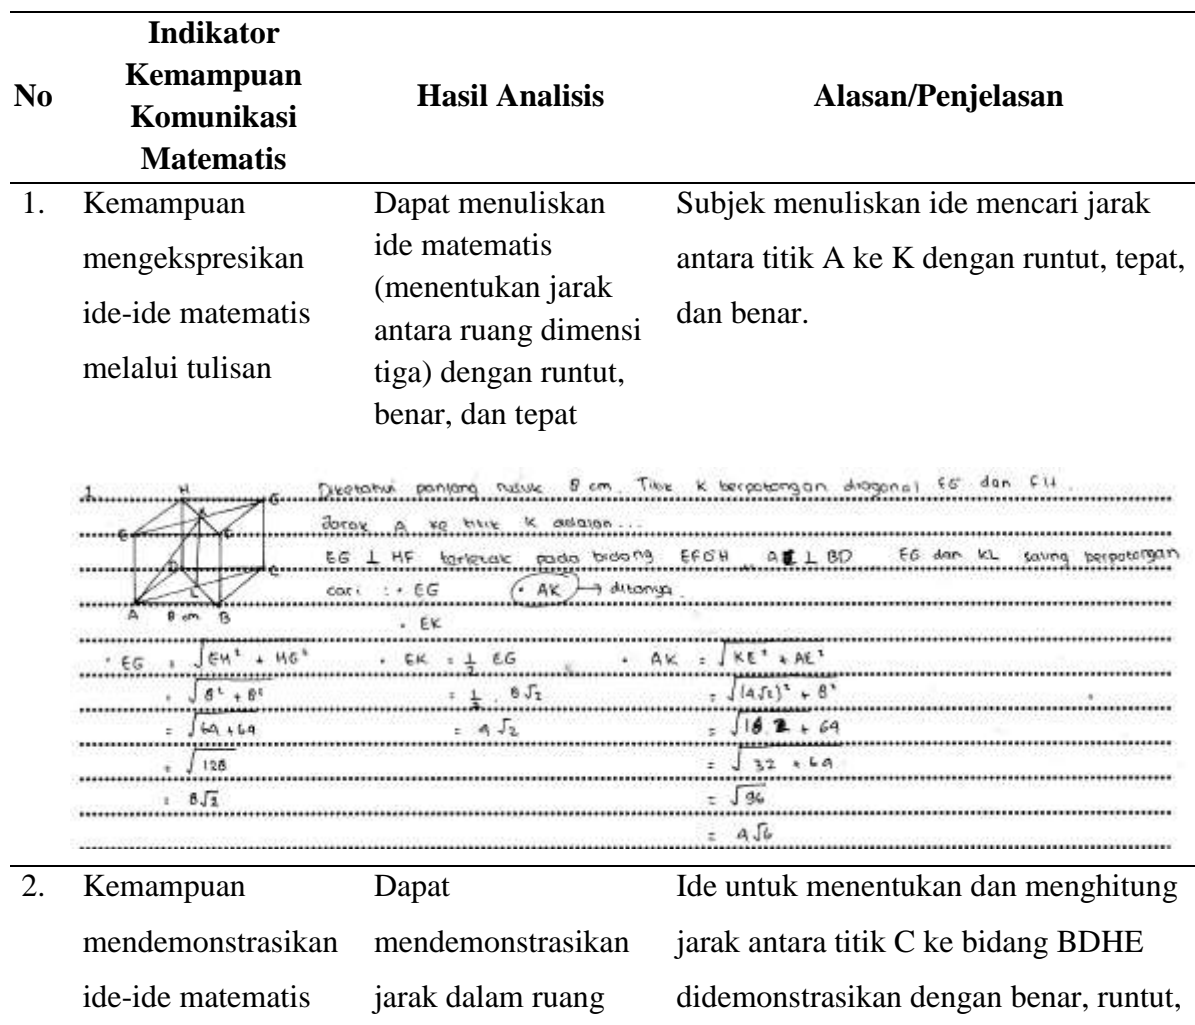 Indikator
Kemampuan
Komunikasi
Matematis
No
Hasil Analisis
Alasan/Penjelasan
1.
Kemampuan
mengekspresikan
ide-ide matematis
melalui tulisan
Dapat menuliskan
ide matematis
(menentukan jarak
antara ruang dimensi
tiga) dengan runtut,
benar, dan tepat
Subjek menuliskan ide mencari jarak
antara titik A ke K dengan runtut, tepat,
dan benar.
1.
H
G
E
D
C
L
A 8 cm B
Diketahui panjang rusuk 8 cm. Titik K berpotongan diagonal EG dan FH.
Jarak A ke titik K adalah...
EG ⊥ HF terletak pada bidang EFGH ⊥ BD EG dan KL saling berpotongan
cari : • EG • AK → ditanya
• EK
• EG = √EH² + HG²
= √8² + 8²
= √64 + 64
= √128
= 8√2
• EK = 1/2 EG
= 1/2 . 8√2
= 4√2
• AK = √KE² + AE²
= √(4√2)² + 8²
= √16.2 + 64
= √32 + 64
= √96
= 4√6
2.
Kemampuan
mendemonstrasikan
ide-ide matematis
Dapat
mendemonstrasikan
jarak dalam ruang
Ide untuk menentukan dan menghitung
jarak antara titik C ke bidang BDHE
didemonstrasikan dengan benar, runtut,